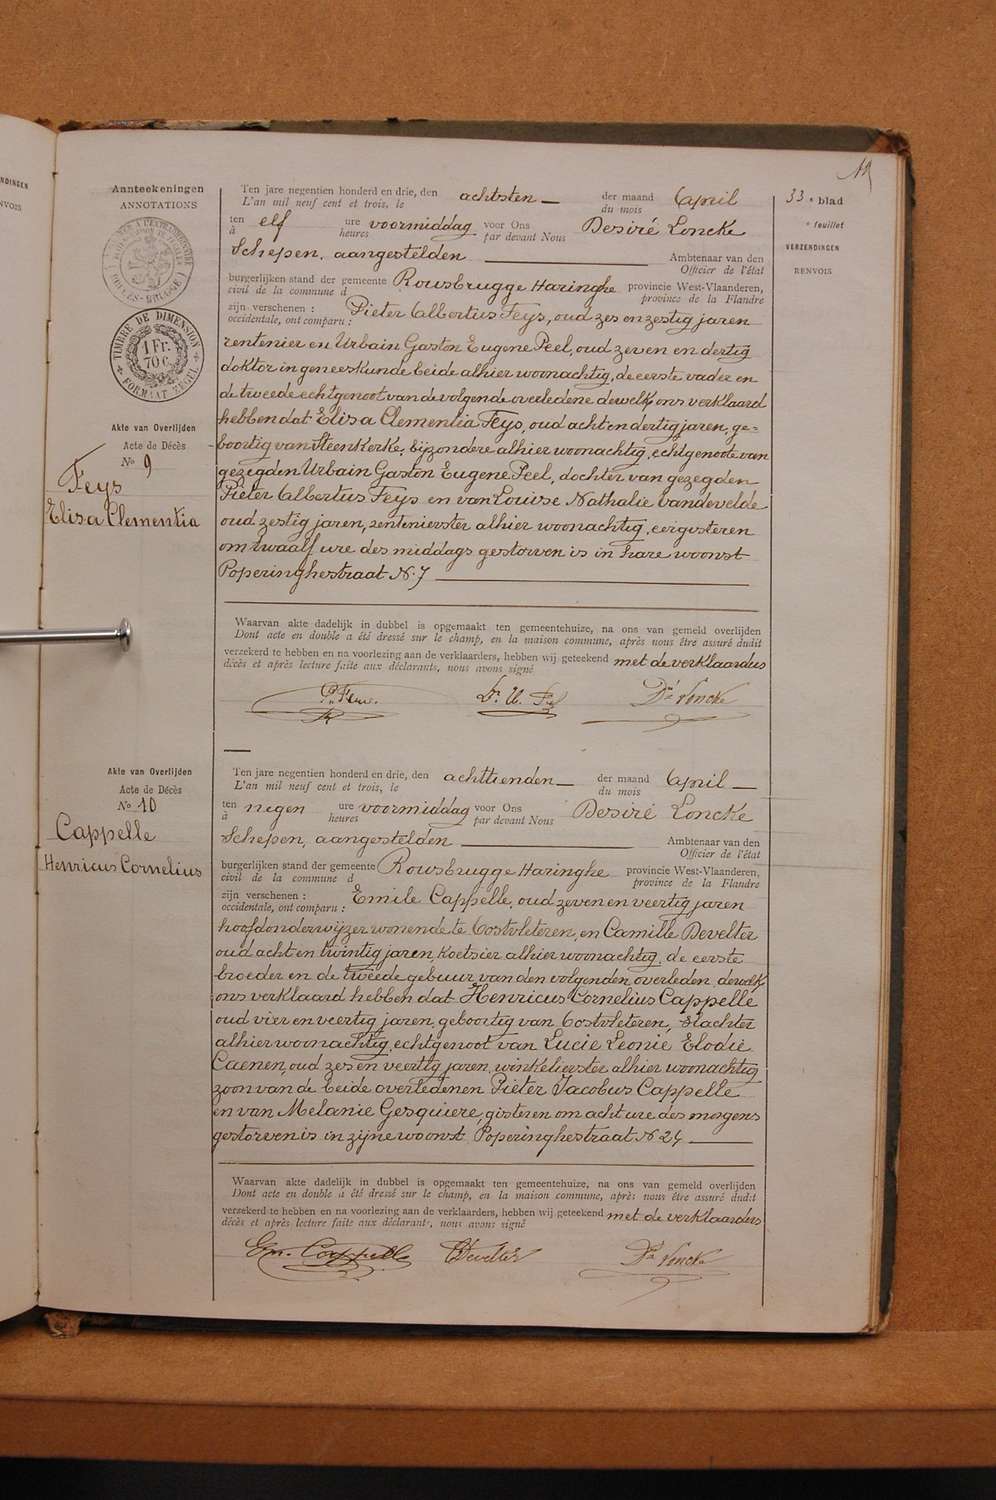 NDINGEN
NVOIS
Aanteekeningen
ANNOTATIONS
TIMBRE DE DIMENSION
1 Fr.
70 c.
FORMAAT ZEGEL
33 e blad
e feuillet
VERZENDINGEN
RENVOIS
Akte van Overlijden
Acte de Décès
No 9
Feys
Elisa Clementia
Ten jare negentien honderd en drie, den achtsten der maand April
L'an mil neuf cent et trois, le du mois
ten elf ure voormiddag voor Ons Desiré Loncke
à heures par devant Nous
Schepen, aangestelden Ambtenaar van den
Officier de l'état
burgerlijken stand der gemeente Rousbrugge Haringhe provincie West-Vlaanderen,
civil de la commune d province de la Flandre
zijn verschenen : Pieter Albertus Feys, oud zes en zestig jaren
occidentale, ont comparu :
rentenier en Urbain Gaston Eugene Peel, oud zeven en dertig
doktor in geneeskunde beide alhier woonachtig, de eerste vader en
de tweede echtgenoot van de volgende overledene dewelk ons verklaard
hebben dat Elisa Clementia Feys, oud acht en dertig jaren, ge=
boortig van Steenkerke, bijzondere alhier woonachtig, echtgenoote van
gezegden Urbain Gaston Eugene Peel, dochter van gezegden
Pieter Albertus Feys en van Louise Nathalie Vandevelde
oud zestig jaren, rentenierster alhier woonachtig, eergisteren
om twaalf ure des middags gestorven is in hare woonst
Poperinghestraat N. 7
Waarvan akte dadelijk in dubbel is opgemaakt ten gemeentehuize, na ons van gemeld overlijden
Dont acte en double a été dressé sur le champ, en la maison commune, après nous être assuré dudit
verzekerd te hebben en na voorlezing aan de verklaarders, hebben wij geteekend met de verklaarders
décès et après lecture faite aux déclarants, nous avons signé
P. Feys. Dr. U. Peel Dré Loncke
Akte van Overlijden
Acte de Décès
No 10
Cappelle
Henricus Cornelius
Ten jare negentien honderd en drie, den achttienden der maand April
L'an mil neuf cent et trois, le du mois
ten negen ure voormiddag voor Ons Desiré Loncke
à heures par devant Nous
Schepen, aangestelden Ambtenaar van den
Officier de l'état
burgerlijken stand der gemeente Rousbrugge Haringhe provincie West-Vlaanderen,
civil de la commune d province de la Flandre
zijn verschenen : Emile Cappelle, oud zeven en veertig jaren
occidentale, ont comparu :
hoofdonderwijzer wonende te Oostvleteren, en Camille Develter
oud acht en twintig jaren, koetsier alhier woonachtig, de eerste
broeder en de tweede gebuur van den volgenden overleden, dewelk
ons verklaard hebben dat Henricus Cornelius Cappelle
oud vier en veertig jaren, geboortig van Oostvleteren, slachter
alhier woonachtig, echtgenoot van Lucie Leonie Elodie
Caenen, oud zes en veertig jaren, winkelierster alhier woonachtig
zoon van de beide overledenen Pieter Jacobus Cappelle
en van Melanie Gesquiere, gisteren om acht ure des morgens
gestorven is in zijne woonst Poperinghestraat N. 24
Waarvan akte dadelijk in dubbel is opgemaakt ten gemeentehuize, na ons van gemeld overlijden
Dont acte en double a été dressé sur le champ, en la maison commune, après nous être assuré dudit
verzekerd te hebben en na voorlezing aan de verklaarders, hebben wij geteekend met de verklaarders
décès et après lecture faite aux déclarant, nous avons signé
Em. Cappelle CDevelter Dré Loncke